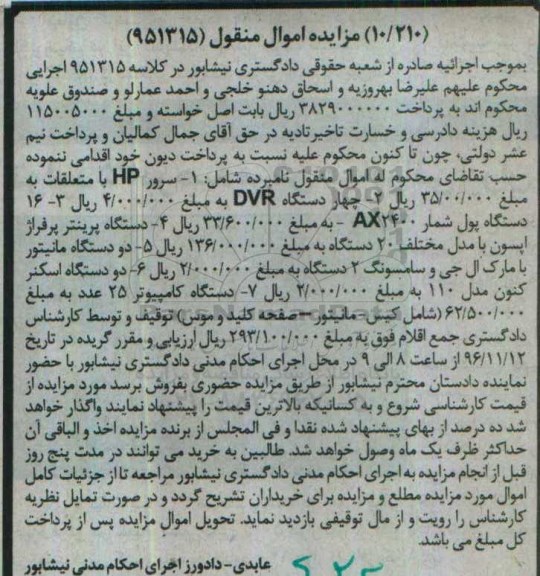 (۱۰/۲۱۰) مزایده اموال منقول (۹۵۱۳۱۵)
بموجب اجرائیه صادره از شعبه حقوقی دادگستری نیشابور در کلاسه ۹۵۱۳۱۵ اجرایی
محکوم علیهم علیرضا بهروزیه و اسحاق دهنو خلجی و احمد عمارلو و صندوق علویه
محکوم اند به پرداخت ۳۸۲۹۰۰۰۰۰۰ ریال بابت اصل خواسته و مبلغ ۱۱۵۰۰۵۰۰۰
ریال هزینه دادرسی و خسارت تاخیرتادیه در حق آقای جمال کمالیان و پرداخت نیم
عشر دولتی، چون تا کنون محکوم علیه نسبت به پرداخت دیون خود اقدامی ننموده
حسب تقاضای محکوم له اموال منقول نامبرده شامل: ۱- سرور HP با متعلقات به
مبلغ ۳۵/۰۰/۰۰۰ ریال ۲- چهار دستگاه DVR به مبلغ ۴/۰۰۰/۰۰۰ ریال ۳- ۱۶
دستگاه پول شمار AX۲۴۰۰ - به مبلغ ۳۳/۶۰۰/۰۰۰ ریال ۴- دستگاه پرینتر پرفراژ
اپسون با مدل مختلف ۲۰ دستگاه به مبلغ ۱۳۶/۰۰۰/۰۰۰ ریال ۵- دو دستگاه مانیتور
با مارک ال جی و سامسونگ ۲ دستگاه به مبلغ ۲/۰۰۰/۰۰۰ ریال ۶- دو دستگاه اسکنر
کنون مدل ۱۱۰ به مبلغ ۲/۰۰۰/۰۰۰ ریال ۷- دستگاه کامپیوتر ۲۵ عدد به مبلغ
۶۲/۵۰۰/۰۰۰ (شامل کیس- مانیتور – صفحه کلید و موس) توقیف و توسط کارشناس
دادگستری جمع اقلام فوق به مبلغ ۲۹۳/۱۰۰/۰۰۰ ریال ارزیابی و مقرر گریده در تاریخ
۹۶/۱۱/۱۲ از ساعت ۸ الی ۹ در محل اجرای احکام مدنی دادگستری نیشابور با حضور
نماینده دادستان محترم نیشابور از طریق مزایده حضوری بفروش برسد مورد مزایده از
قیمت کارشناسی شروع و به کسانیکه بالاترین قیمت را پیشنهاد نمایند واگذار خواهد
شد ده درصد از بهای پیشنهاد شده نقدا و فی المجلس از برنده مزایده اخذ و الباقی آن
حداکثر ظرف یک ماه وصول خواهد شد. طالبین به خرید می توانند در مدت پنج روز
قبل از انجام مزایده به اجرای احکام مدنی دادگستری نیشابور مراجعه تا از جزئیات کامل
اموال مورد مزایده مطلع و مزایده برای خریداران تشریح گردد و در صورت تمایل نظریه
کارشناس را رویت و از مال توقیفی بازدید نماید. تحویل اموال مزایده پس از پرداخت
کل مبلغ می باشد.
عابدی- دادورز اجرای احکام مدنی نیشابور